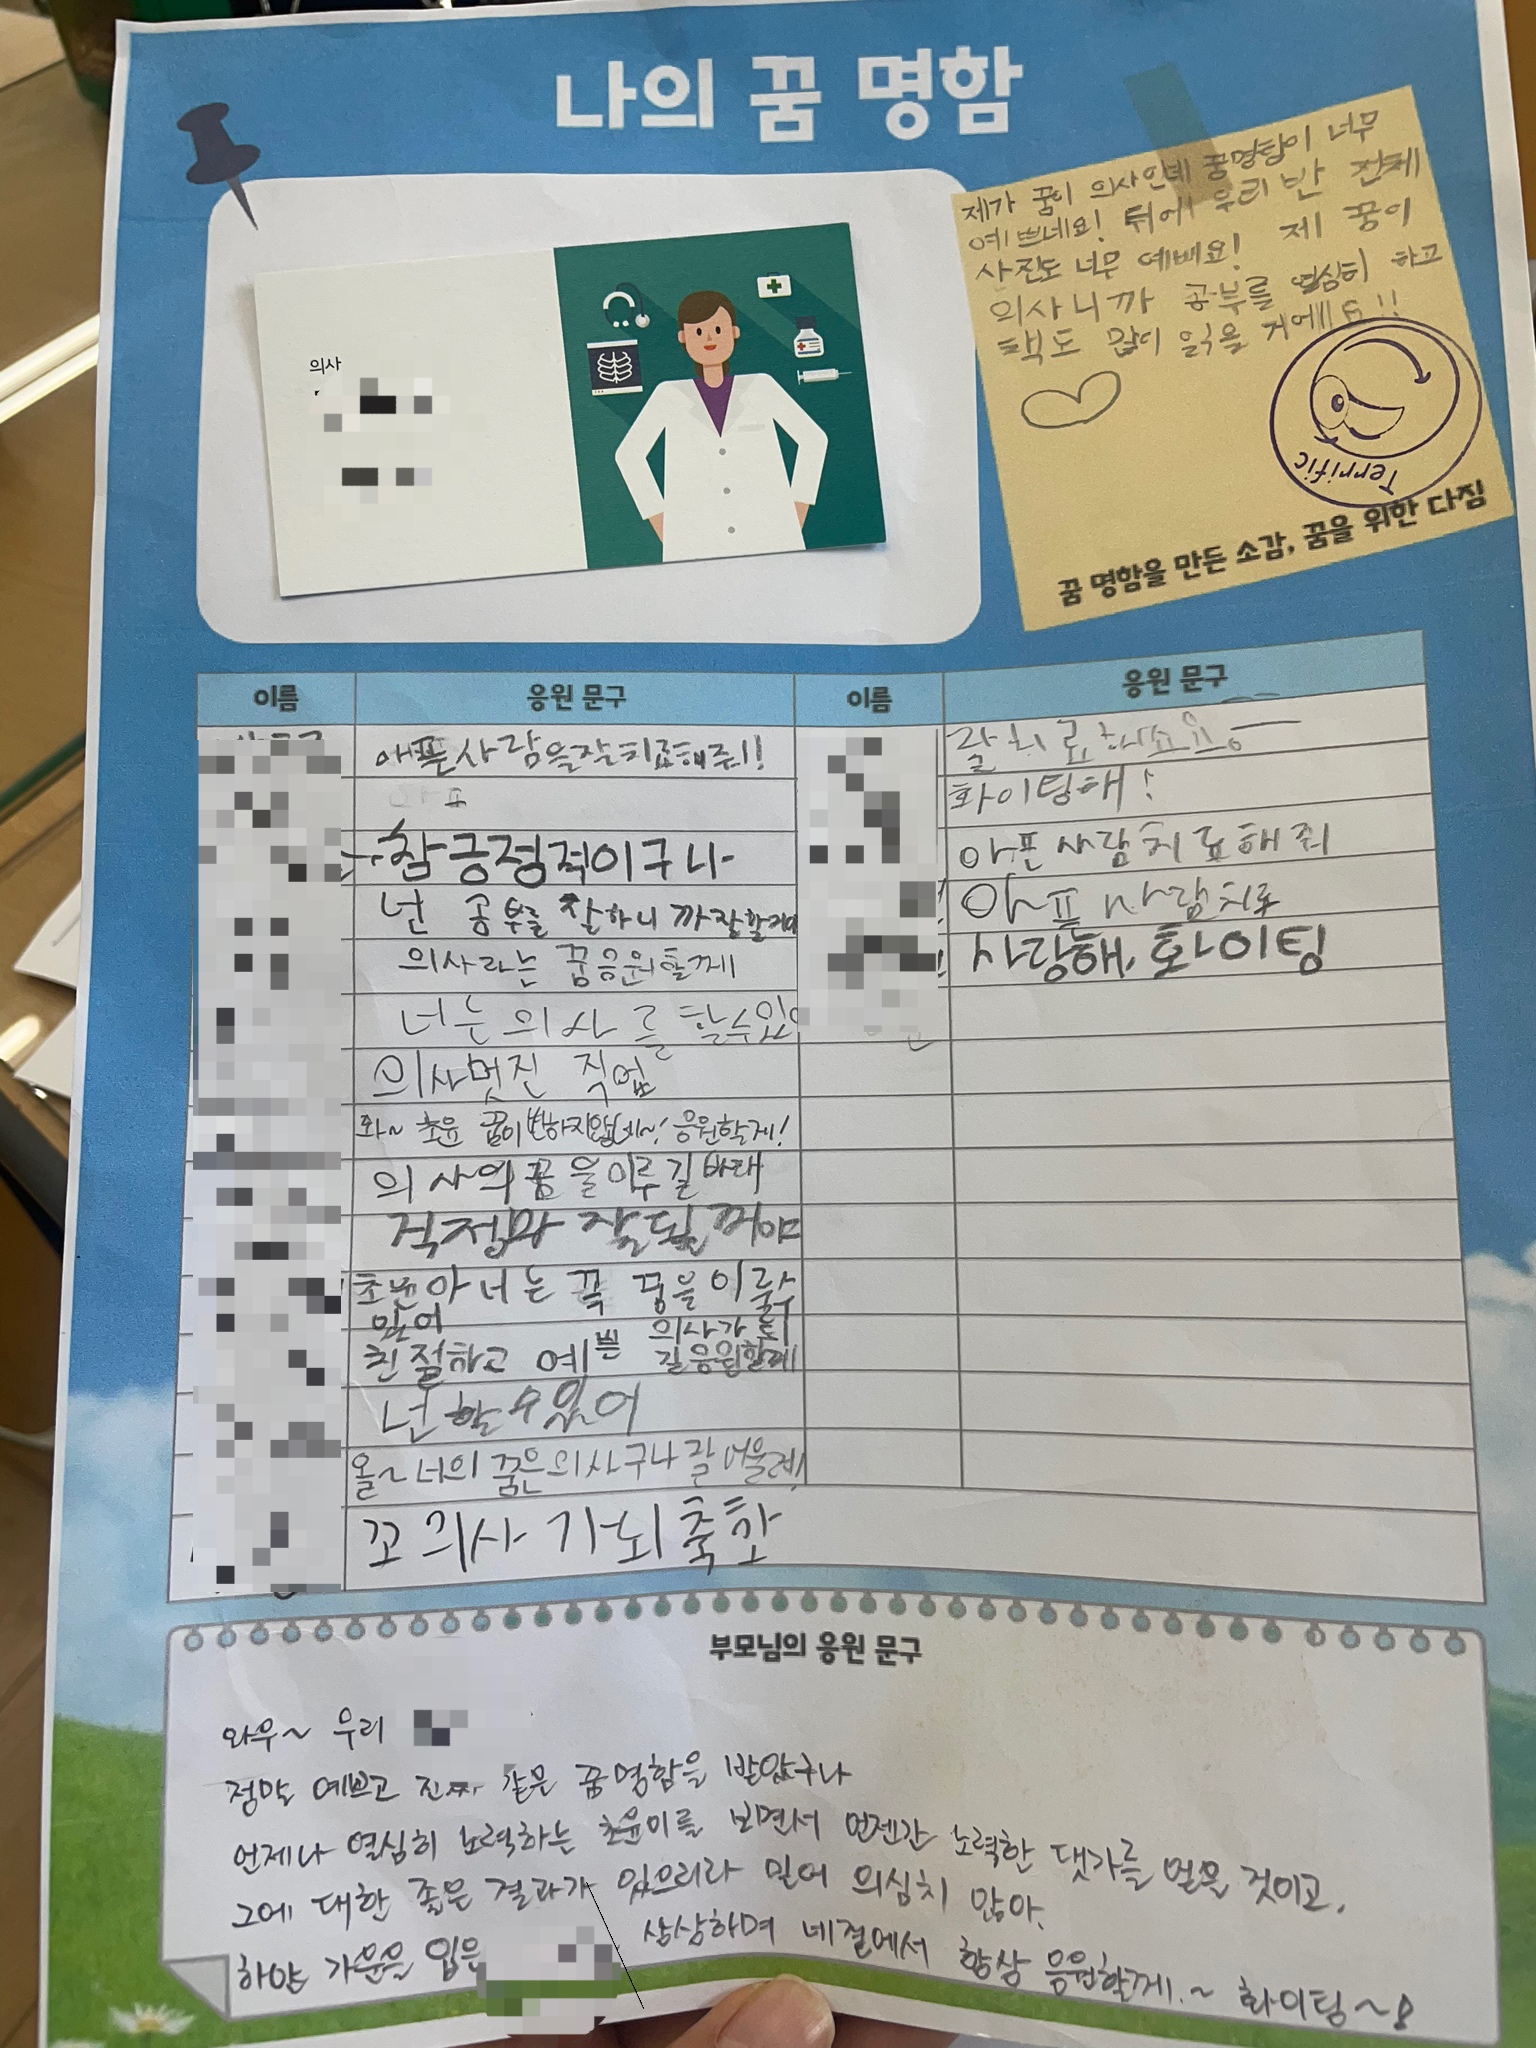 나의 꿈 명함
의사
제가 꿈이 의사인데 꿈명함이 너무
예쁘네요! 뒤에 우리 반 전체
사진도 너무 예뻐요! 제 꿈이
의사니까 공부를 열심히 하고
책도 많이 읽을 거에요!!
Terrific
꿈 명함을 만든 소감, 꿈을 위한 다짐
이름 응원 문구 이름 응원 문구
애픈사람을잘치료해줘!
참긍정적이구나
넌 공부를 잘하니까잘할거야
의사라는 꿈응원할께
너는 의사를 할수있
의사멋진 직업
와~ 초윤 꿈이 변하지않네~! 응원할게!
의사의꿈을이루길바래
직접와 잘될꺼야
초윤아 너는 꼭 꿈을 이룰수
있어
친절하고 예쁜 의사가 되
길응원할께
넌 할수있어
올~너의 꿈은의사구나 잘어울려!
꼬 의사 가되 축하
잘치료하쇼요
화이팅해!
아픈사람치료해줘
아픈사람치료
사랑해, 화이팅
부모님의 응원 문구
와우~ 우리
정말 예쁘고 진짜 같은 꿈명함을 받았구나
언제나 열심히 노력하는 초윤이를 보면서 언젠간 노력한 댓가를 얻을 것이고,
그에 대한 좋은 결과가 있으리라 믿어 의심치 않아.
하얀 가운을 입은 상상하며 네곁에서 항상 응원할께.~ 화이팅~!